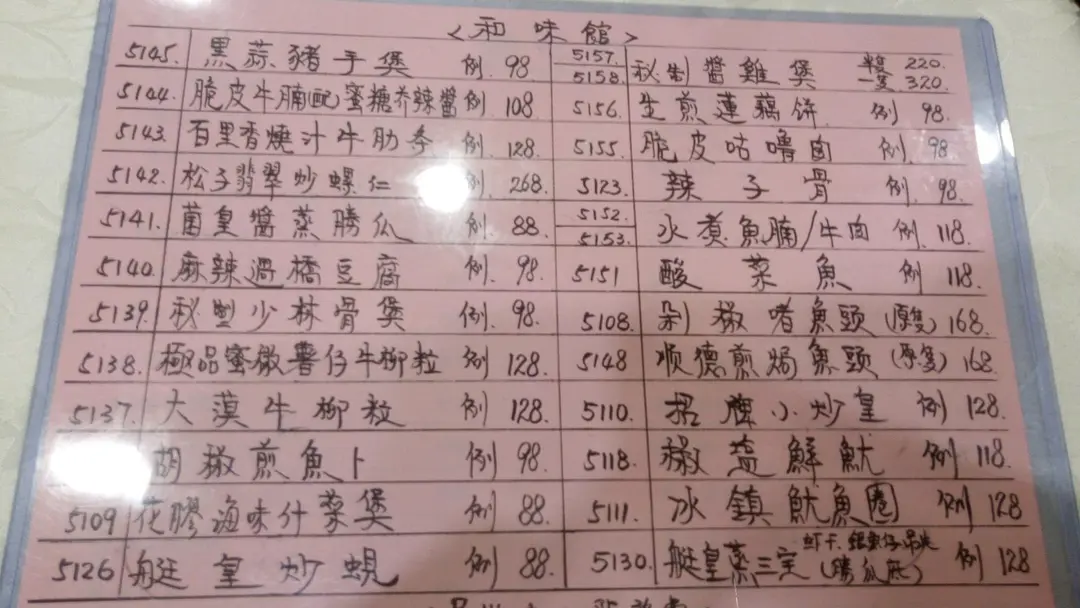 <和味館>
5145. 黑蒜豬手煲 例. 98.
5144. 脆皮牛腩(配)蜜糖芥辣醬 例 108
5143. 百里香燒汁牛肋条 例. 128.
5142. 松子翡翠炒螺仁 例. 268.
5141. 菌皇醬蒸勝瓜 例. 88.
5140. 麻辣過橋豆腐 例. 98.
5139. 秘型少林骨煲 例. 98.
5138. 極品蜜椒薯仔牛柳粒 例 128.
5137. 大漠牛柳粒 例 128.
胡椒煎魚卜 例 98.
5109 花膠海味什菜煲 例 88.
5126 艇皇炒蜆 例 88.
5157.
5158. 秘制醬雞煲 半隻 220.
一隻 320.
5156. 生煎蓮藕餅 例 98.
5155. 脆皮咕嚕肉 例. 98.
5123. 辣子骨 例. 98
5152.
5153. 水煮魚腩/牛肉 例. 118.
5151 酸菜魚 例 118.
5108. 剁椒啫魚頭(原隻) 168.
5148 顺德煎焗魚頭(原隻) 168.
5110. 招牌小炒皇 例 128.
5118. 椒盐鮮魷 例 118.
5111. 冰鎮魷魚圈 例 128
5130. 艇皇蒸三宝 (勝瓜底) 例 128
虾干.銀魚仔